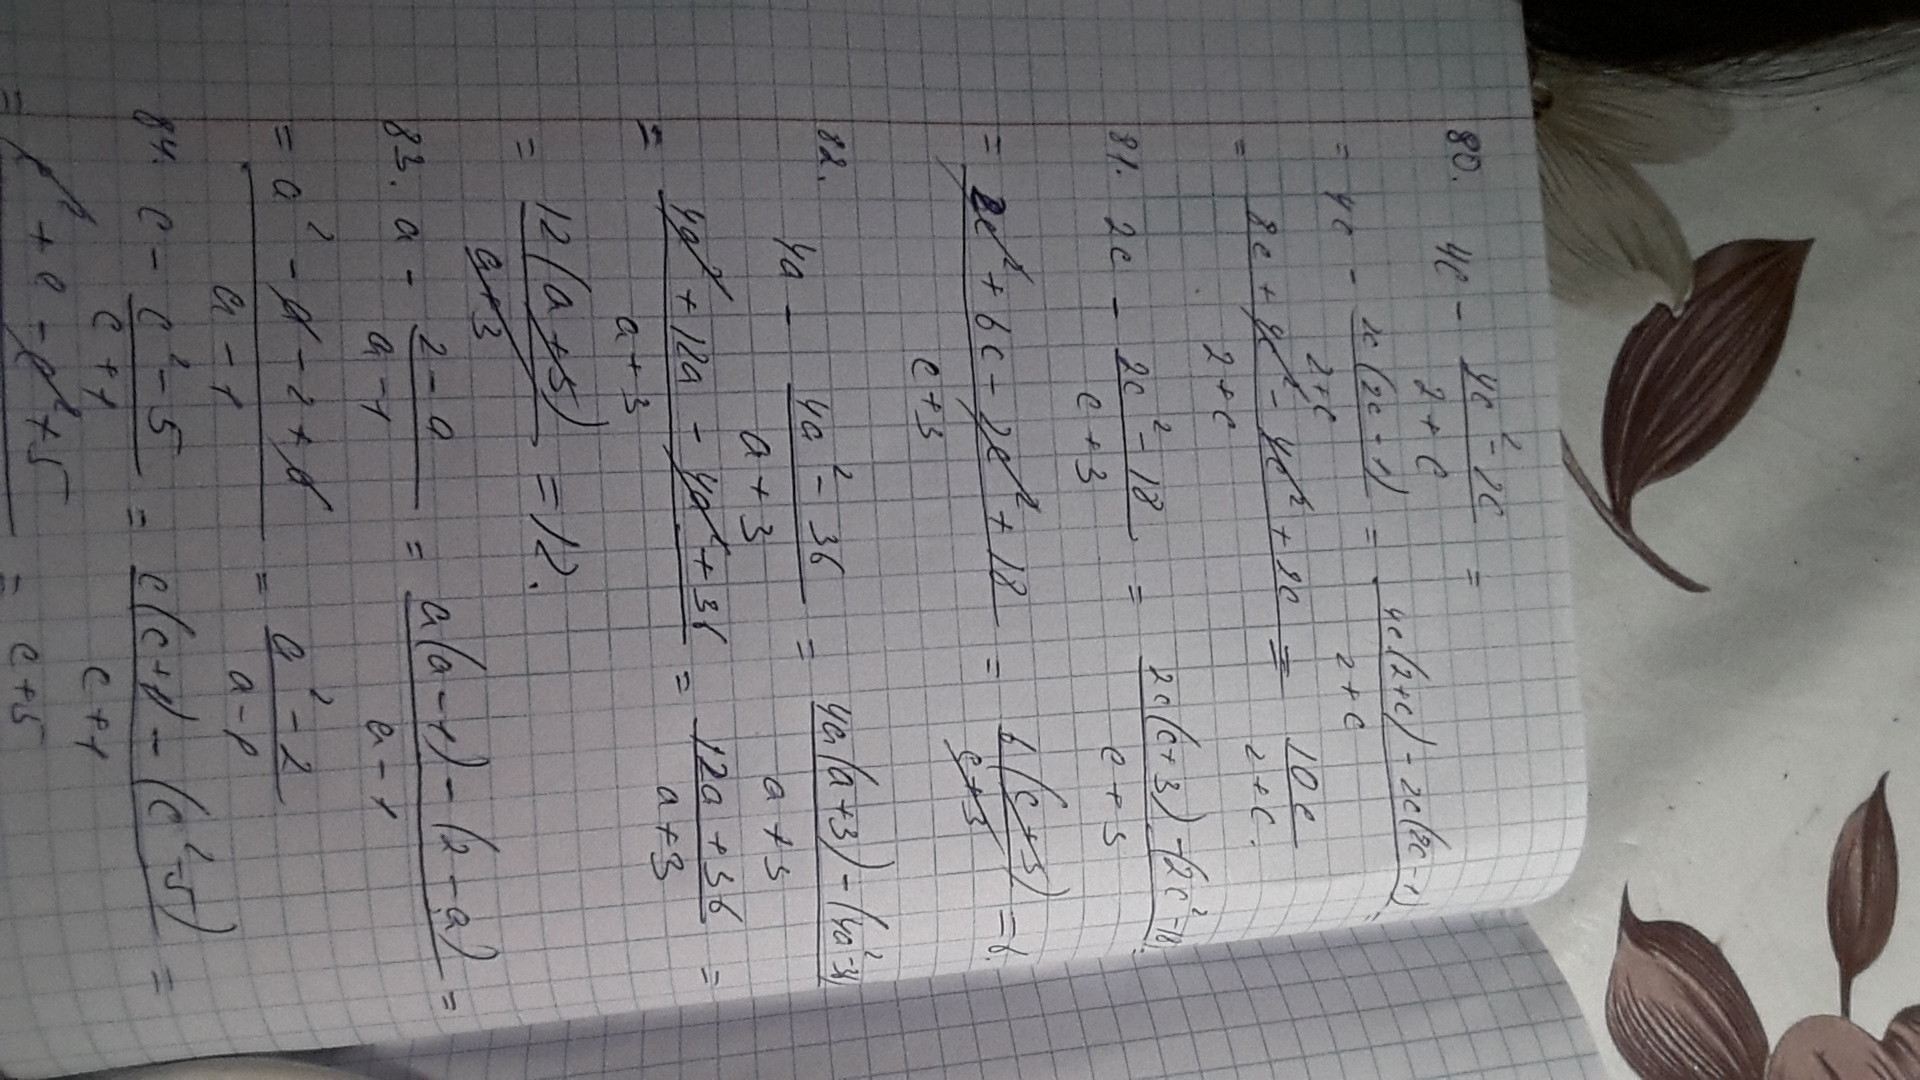 80. 4c - (4c² - 2c)/(2 + c) =
= 4c - 2c(2c - 1)/(2 + c) = (4c(2+c) - 2c(2c - 1))/(2 + c)
= (8c + 4c² - 4c² + 2c)/(2 + c) = 10c/(2 + c).
81. 2c - (2c² - 18)/(c + 3) = (2c(c+3) - (2c² - 18))/(c + 3)
= (2c² + 6c - 2c² + 18)/(c + 3) = 6(c+3)/(c+3) = 6.
82.
4a - (4a² - 36)/(a + 3) = (4a(a+3) - (4a² - 36))/(a + 3)
= (4a² + 12a - 4a² + 36)/(a + 3) = (12a + 36)/(a + 3) =
= 12(a + 3)/(a+3) = 12.
83. a - (2 - a)/(a - 1) = (a(a - 1) - (2 - a))/(a - 1) =
= (a² - a - 2 + a)/(a - 1) = (a² - 2)/(a - 1)
84. c - (c² - 5)/(c + 1) = (c(c+1) - (c² - 5))/(c + 1) =
= c² + c - c² + 5 = c + 5